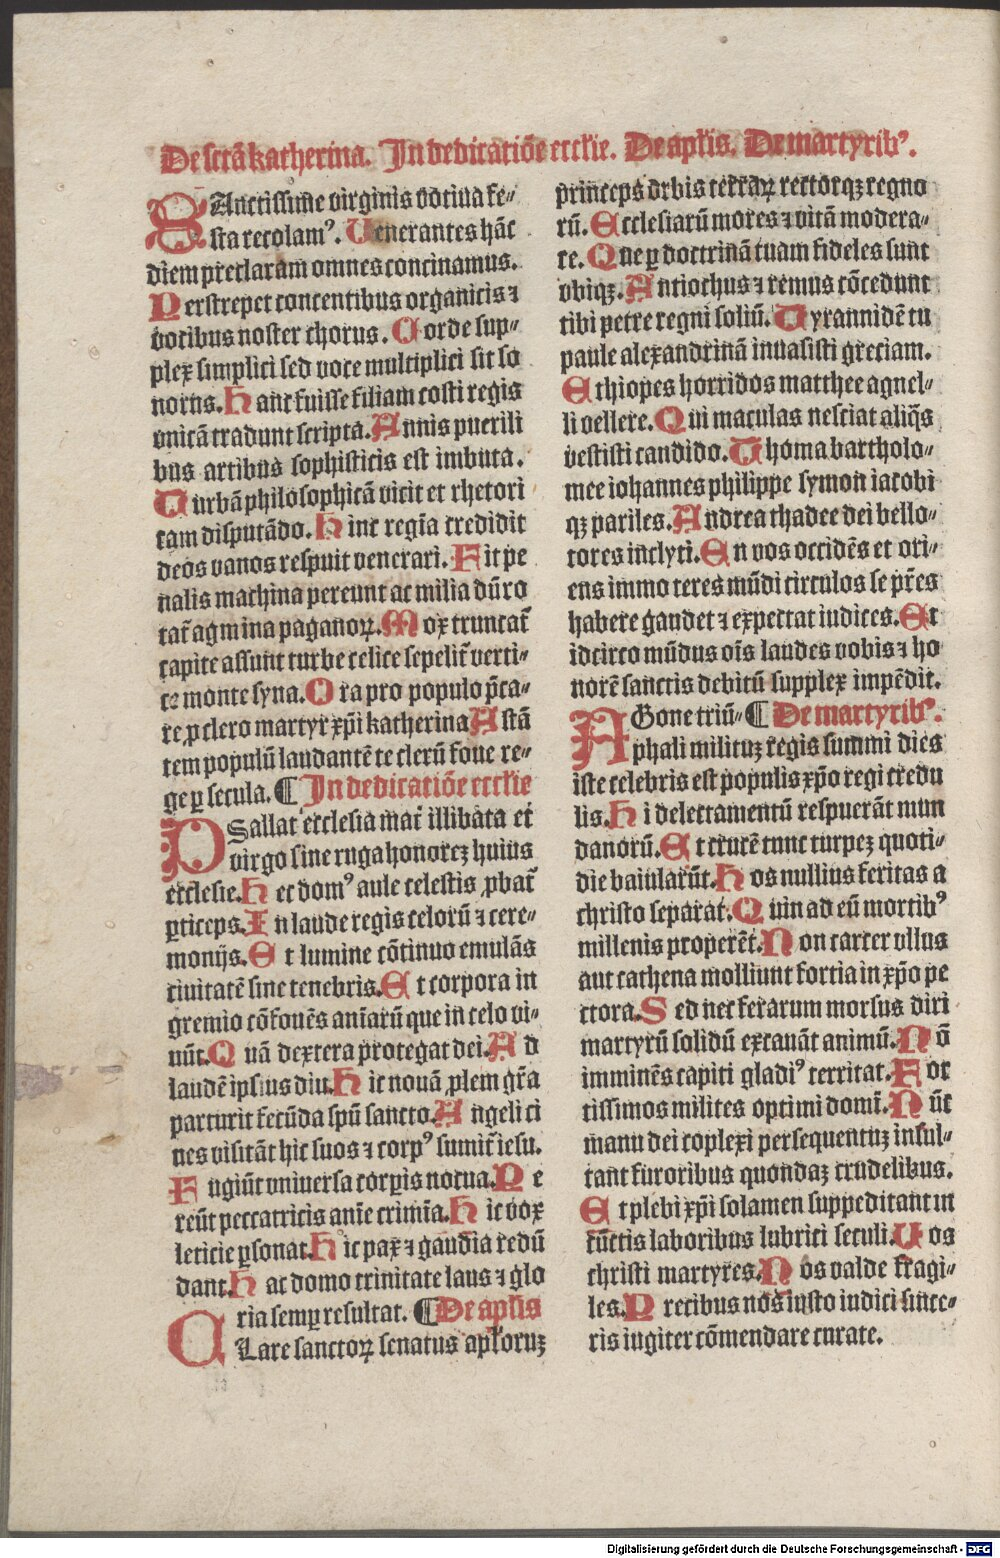 De sctā katherina. In dedicatiōe eccƚie. De apƚis. De martyribꝰ.
SAnctissime virginis votiua fe-
sta recolamꝰ. Uenerantes hāc
diem preclaram omnes concinamus.
Perstrepet concentibus organicis ⁊
vocibus noster chorus. Corde sup-
plex simplici sed voce multiplici sit so
norus. Hanc fuisse filiam costi regis
vnicā tradunt scripta. Annis puerili
bus artibus sophisticis est imbuta.
Turbā philosophicā vicit et rhetori
cam disputādo. Hinc regīa credidit
deos vanos respuit venerari. Fit pe
nalis machina pereunt ac milia dūro
tat̄ agmina paganoꝝ. Mox truncat̄
capite assunt turbe celice sepelit̄ verti-
ce monte syna. Ora pro populo p̄ca-
re ꝓ clero martyr xp̄i katherina Astā
tem populū laudantē te clerū foue re-
ge ꝑ secula. ¶ In dedicatiōe eccƚie
PSallat ecclesia mat̄ illibata et
virgo sine ruga honorēꝫ huius
ecclesie. Hec domꝰ aule celestis ꝓbat̄
ꝑticeps. In laude regis celorū ⁊ cere-
monijs. Et lumine cōtinuo emulās
ciuitatē sine tenebris. Et corpora in
gremio cōfouēs anīarū que in celo vi-
uūt. Quā dextera protegat dei. Ad
laudē ipsius diu. Hic nouā ꝓlem gr̄a
parturit fecūda spū sancto. Angeli ci
ues visitāt hic suos ⁊ corpꝰ sumit̄ iesu.
Fugiūt vniuersa corꝑis nocua. Pe
reūt peccatricis anīe crimīa. Hic vox
leticie ꝑsonat. Hic pax ⁊ gaudia redū
dant. Hac domo trinitate laus ⁊ glo
ria semꝑ resultat. ¶ De apƚis
CLare sanctoꝝ senatus apƚoruꝫ
princeps orbis terraꝝ rectorqꝫ regno
rū. Ecclesiarū mores ⁊ vitā modera-
re. Que ꝑ doctrinā tuam fideles sunt
vbiqꝫ. Antiochus ⁊ remus cōcedunt
tibi petre regni soliū. Tyrannidē tu
paule alexandrinā inuasisti greciam.
Ethiopes horridos matthee agnel-
li vellere. Qui maculas nesciat aliq̄s
vestisti candido. Thoma bartholo-
mee iohannes philippe symon iacobi
qꝫ pariles. Andrea thadee dei bello-
tores inclyti. En vos occidēs et ori-
ens immo teres mūdi circulos se pr̄es
habere gaudet ⁊ expectat iudices. Et
idcirco mūdus oīs laudes vobis ⁊ ho
norē sanctis debitū supplex impēdit.
AGone triū- ¶ De martyribꝰ.
phali milituꝫ regis summi dies
iste celebris est populis xp̄o regi credu
lis. Hi delectamentū respuerāt mun
danorū. Et crucē tunc turpeꝫ quoti-
die baiularūt. Hos nullius feritas a
christo separat. Quin ad eū mortibꝰ
millenis properēt. Non carcer vllus
aut cathena molliunt fortia in xp̄o pe
ctora. Sed nec ferarum morsus diri
martyrū solidū excauāt animū. Nō
imminēs capiti gladiꝰ territat. For
tissimos milites optimi domī. Nūc
manu dei coplexi persequentuꝫ insul-
tant furoribus quondaꝫ crudelibus.
Et plebi xp̄i solamen suppeditant in
cūctis laboribus lubrici seculi. Uos
christi martyres. Nos valde fragi-
les. Precibus nos iusto iudici since-
ris iugiter cōmendare curate.
Digitalisierung gefördert durch die Deutsche Forschungsgemeinschaft - DFG